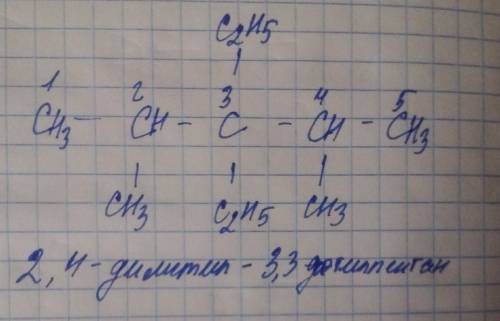 C2H5
1 2 3 4 5
CH3 - CH - C - CH - CH3
CH3 C2H5 CH3
2,4-диметил-3,3 диэтилпентан